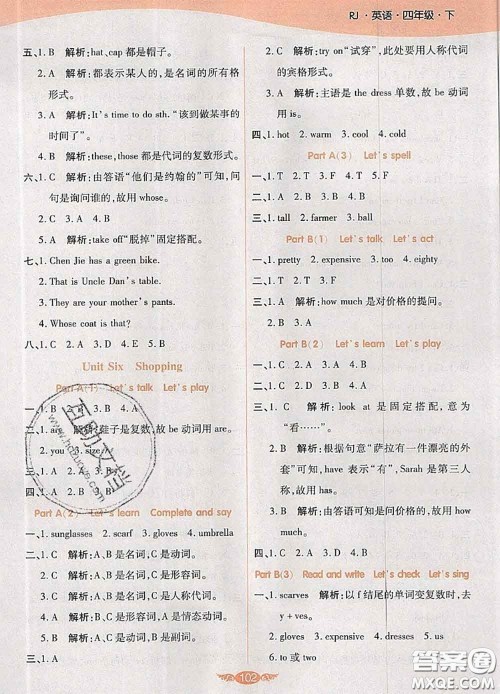 RJ·英语·四年级·下
五、1. B 解析:hat、cap 都是帽子。
2. A 解析:都表示某人的,是名词的所有格
形式。
3. A 解析:It's time to do sth.“该到做某事的
时间了”。
4. B 解析:these、those 都是代词的复数形式。
六、1. C 解析:由答语“他们是约翰的”可知,问
句是询问谁的,故用 whose。
2. C 3. A 4. B
5. A 解析:take off“脱掉”固定搭配。
七、1. Chen Jie has a green bike.
2. That is Uncle Dan's jacket.
3. They are my mother's pants.
4. Whose coat is that?
八、1. C 2. A 3. D 4. B
Unit Six Shopping
Part A(1) Let's talk Let's play
一、1. B 2. A 3. B 4. A
二、1. are 解析:鞋子是复数,故 be 动词用 are。
2. you 3. size
四、1. A 2. B 3. B
Part A(2) Let's learn Complete and say
一、1. sunglasses 2. scarf 3. gloves 4. umbrella
二、1. C 解析:A、B 是名词,C 是动词。
2. C 解析:A、B 是名词,C 是形容词。
3. C 解析:A、B 是名词,C 是形容词。
4. A 解析:B、C 是动词,A 是情态动词。
5. B 解析:A、C 是动词,B 是副词。
三、1. A
2. A 解析:try on“试穿”,此处要用人称代词
的宾格形式。
3. A 解析:主语是 the dress 单数,故 be 动词
用 is。
四、1. hot 2. warm 3. cool 4. cold
Part A(3) Let's spell
一、1. A 2. B 3. B 4. A
二、1. F 2. T 3. F 4. T
三、1. tall 2. farmer 3. ball
Part B(1) Let's talk Let's act
一、1. pretty 2. expensive 3. too 4. eighty
二、1. T 2. T 3. F 4. T
三、1. A 解析:how much 是对价格的提问。
2. B 3. A 4. B
Part B(2) Let's learn Let's play
一、1. C 2. A 3. D 4. B
二、1. B 2. B 3. A 4. B
三、1. C 解析:look at 是固定搭配,意为
“看……”。
2. B 3. A
4. B 解析:根据句意“萨拉有一件漂亮的外
套”可知,have 表示“有”,Sarah 是第三人
称,故用 has。
5. B 解析:由答语可知是问价格的,故用
how much。
四、1. C 2. D 3. A 4. B
Part B(3) Read and write Let's check Let's sing
一、1. scarves 解析:以 f 结尾的单词变复数时,去
f 变 ves。
2. gloves 3. expensive 4. cheap 5. us
6. to 或 two
102
答案圈
MXQE.COM